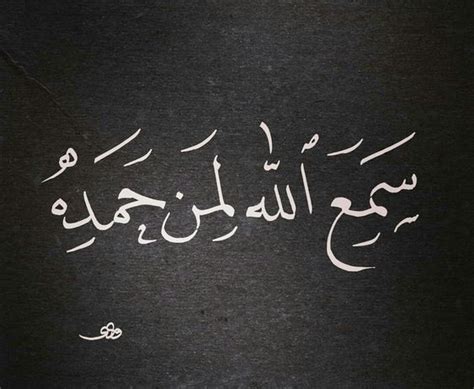 سَمِعَ ٱللَّهُ لِمَن حَمِدَهُ